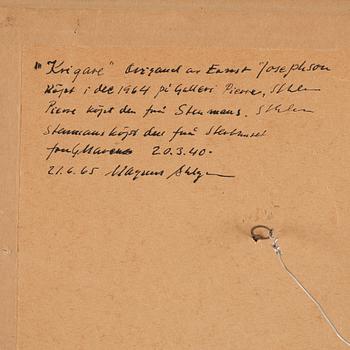 "Krigare" Original av Ernst Josephson
köpt i dec 1964 på Galleri Pierre, Sthlm
Pierre köpt den från Stenmans, Sthlm
Stenmans köpt den från Sterbhuset
20.3.40-
21.6.65 Magnus